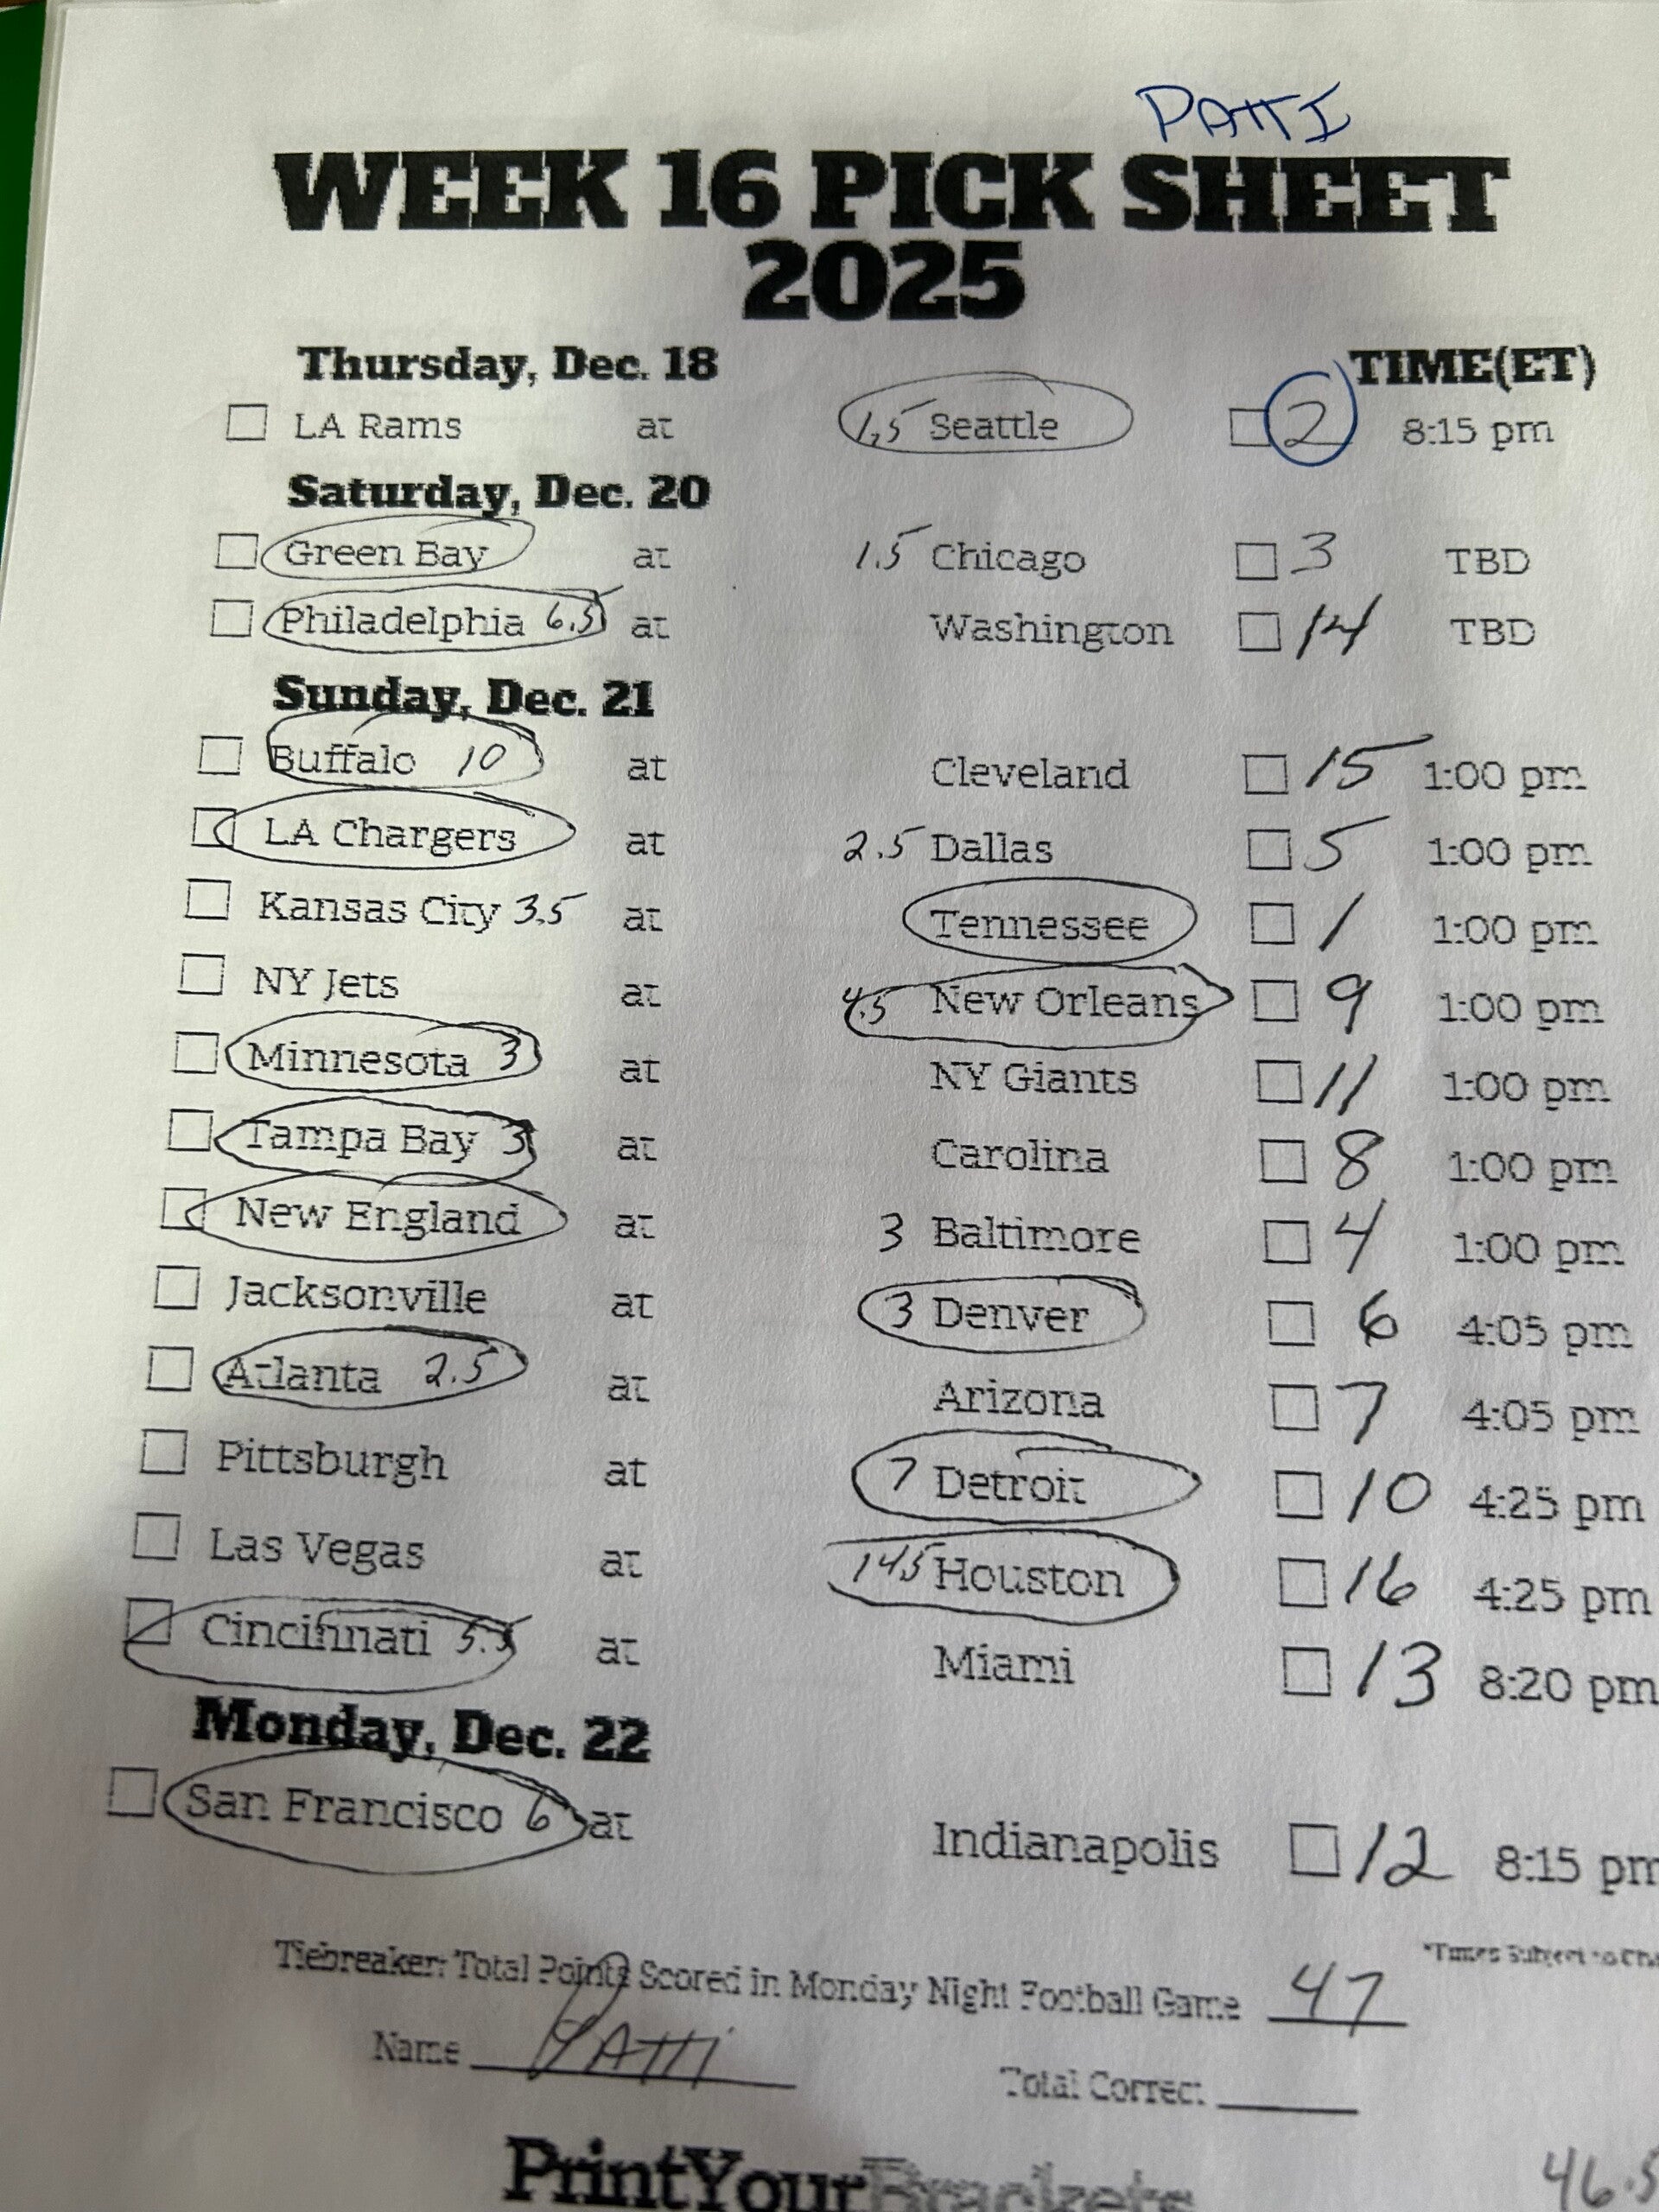 PATTI
WEEK 16 PICK SHEET
2025
Thursday, Dec. 18 TIME(ET)
LA Rams at 1.5 Seattle 2 8:15 pm
Saturday, Dec. 20
Green Bay at 1.5 Chicago 3 TBD
Philadelphia 6.5 at Washington 14 TBD
Sunday, Dec. 21
Buffalo 10 at Cleveland 15 1:00 pm
LA Chargers at 2.5 Dallas 5 1:00 pm
Kansas City 3.5 at Tennessee 1 1:00 pm
NY Jets at 4.5 New Orleans 9 1:00 pm
Minnesota 3 at NY Giants 11 1:00 pm
Tampa Bay 3 at Carolina 8 1:00 pm
New England at 3 Baltimore 4 1:00 pm
Jacksonville at 3 Denver 6 4:05 pm
Atlanta 2.5 at Arizona 7 4:05 pm
Pittsburgh at 7 Detroit 10 4:25 pm
Las Vegas at 14.5 Houston 16 4:25 pm
Cincinnati 5.5 at Miami 13 8:20 pm
Monday, Dec. 22
San Francisco 6 at Indianapolis 12 8:15 pm
*Times Subject to
Tiebreaker: Total Points Scored in Monday Night Football Game 47
Name PATTI Total Correct
PrintYourBrackets 46.5